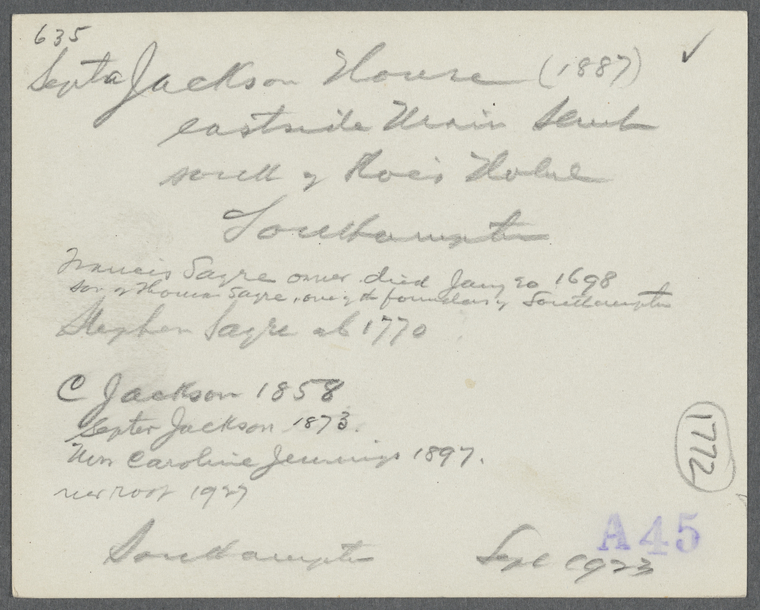 635
Septa Jackson House (1887) ✓
eastside Main Street
south of Hotel
Southampton
Francis Sayre owner died Jany 20 1698
son of Thomas Sayre, one of the founders of Southampton
Stephen Sayre ab 1770
C Jackson 1858
Septer Jackson 1873.
Mrs Caroline Jennings 1897.
new roof 1927
1772
A45
Southampton Sept 1923